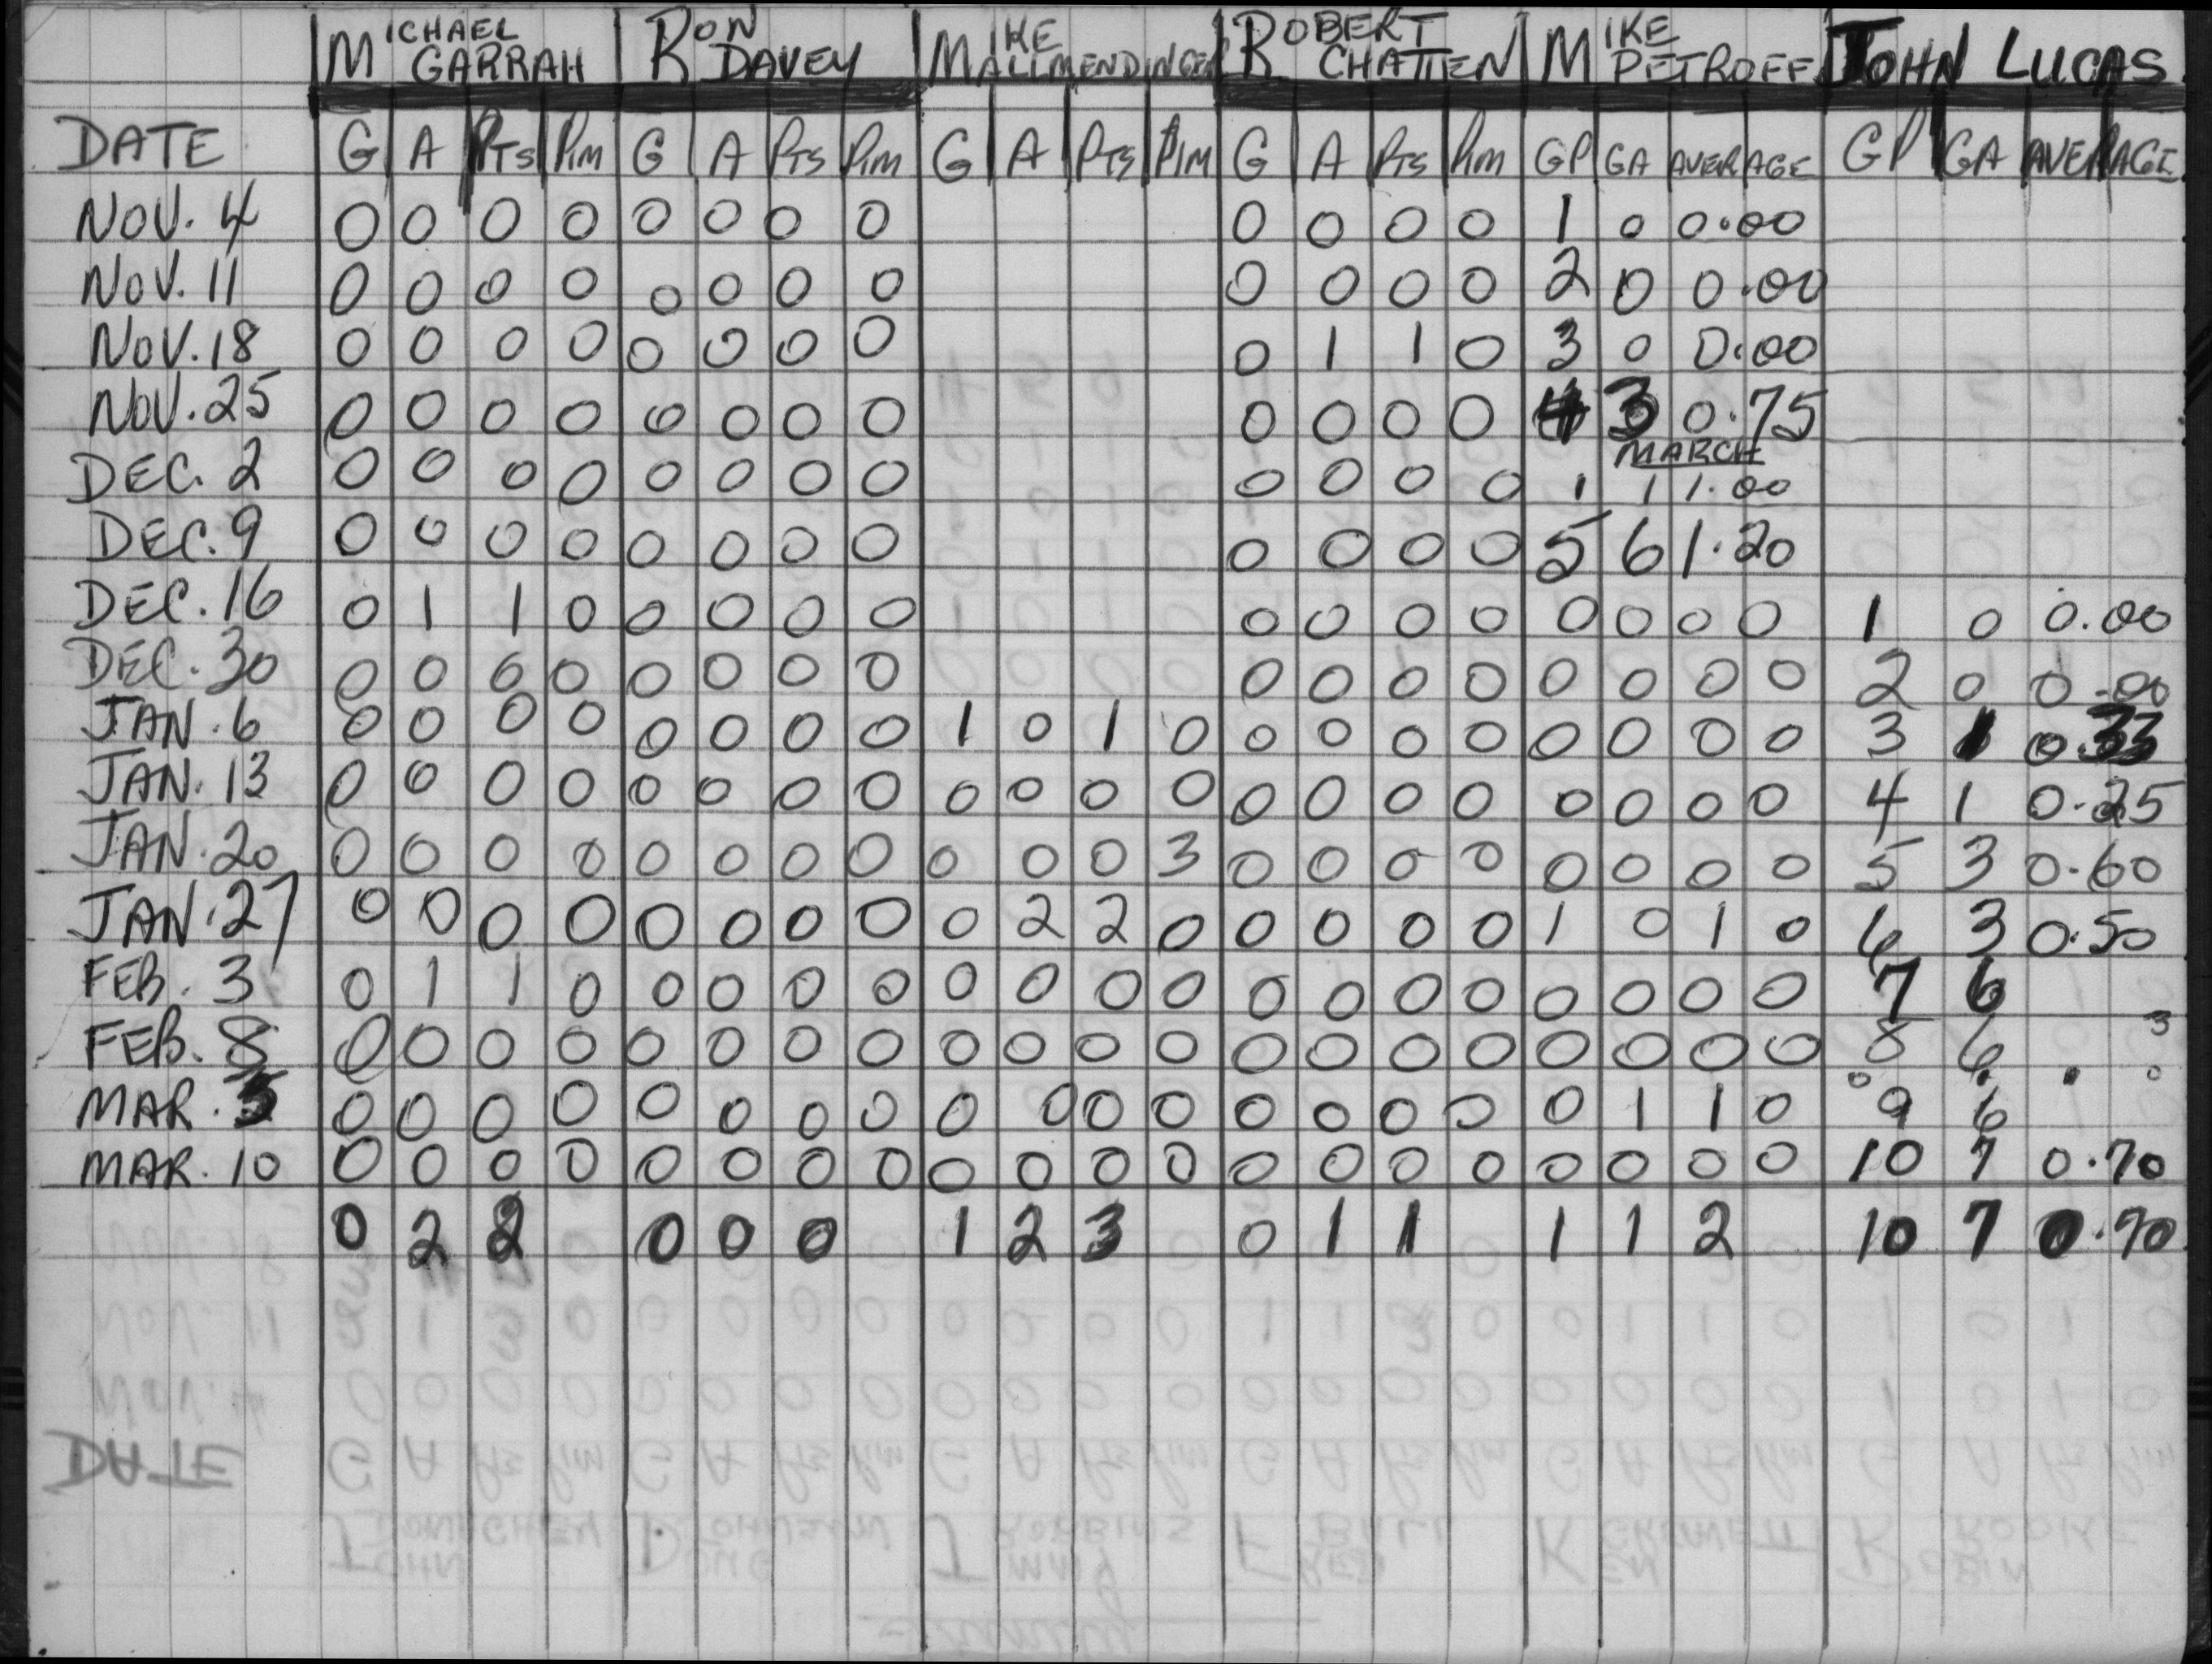 MICHAEL GARRAH RON DAVEY MIKE ALLMENDINGER ROBERT CHATTEN MIKE PETROFF JOHN LUCAS
DATE G A PTS PIM G A PTS PIM G A PTS PIM G A PTS PIM GP GA AVERAGE GP GA AVERAGE
NOV. 4 0 0 0 0 0 0 0 0 0 0 0 0 1 0 0.00
NOV. 11 0 0 0 0 0 0 0 0 0 0 0 0 2 0 0.00
NOV. 18 0 0 0 0 0 0 0 0 0 1 1 0 3 0 0.00
NOV. 25 0 0 0 0 0 0 0 0 0 0 0 0 4 3 0.75
MARCH
DEC. 2 0 0 0 0 0 0 0 0 0 0 0 0 1 1 1.00
DEC. 9 0 0 0 0 0 0 0 0 0 0 0 0 5 6 1.20
DEC. 16 0 1 1 0 0 0 0 0 0 0 0 0 0 0 0 0 1 0 0.00
DEC. 30 0 0 0 0 0 0 0 0 0 0 0 0 0 0 0 0 2 0 0.00
JAN. 6 0 0 0 0 0 0 0 0 1 0 1 0 0 0 0 0 0 0 0 0 3 1 0.33
JAN. 13 0 0 0 0 0 0 0 0 0 0 0 0 0 0 0 0 0 0 0 0 4 1 0.25
JAN. 20 0 0 0 0 0 0 0 0 0 0 0 3 0 0 0 0 0 0 0 0 5 3 0.60
JAN. 27 0 0 0 0 0 0 0 0 0 2 2 0 0 0 0 0 1 0 1 0 6 3 0.50
FEB. 3 0 1 1 0 0 0 0 0 0 0 0 0 0 0 0 0 0 0 0 0 7 6
FEB. 8 0 0 0 0 0 0 0 0 0 0 0 0 0 0 0 0 0 0 0 0 8 6 3
MAR. 3 0 0 0 0 0 0 0 0 0 0 0 0 0 0 0 0 0 1 1 0 9 6
MAR. 10 0 0 0 0 0 0 0 0 0 0 0 0 0 0 0 0 0 0 0 0 10 7 0.70
0 2 2 0 0 0 1 2 3 0 1 1 1 1 2 10 7 0.70